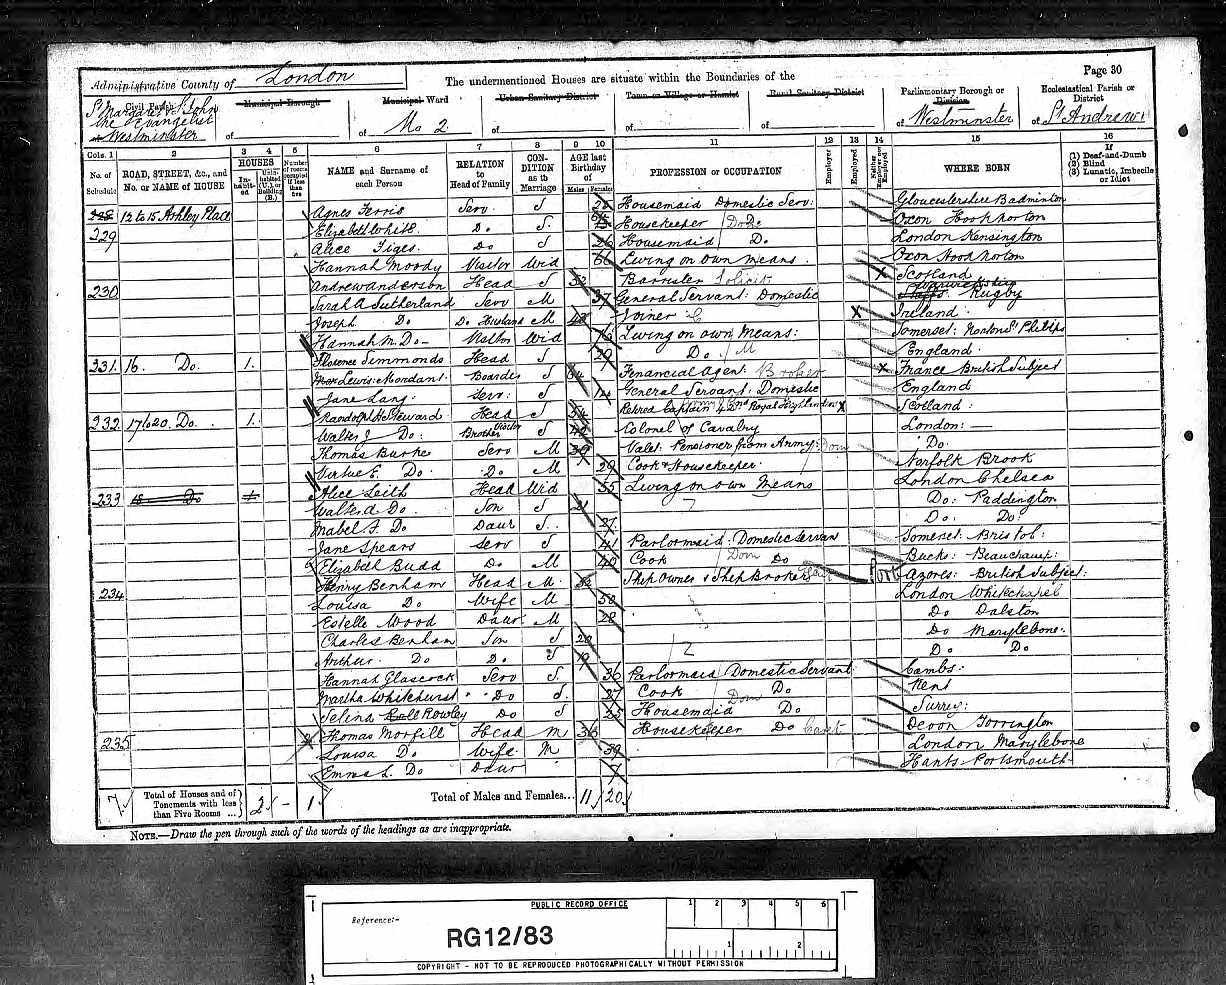 Administrative County of London
The undermentioned Houses are situate within the Boundaries of the
Page 30
Civil Parish
St Margaret & St John the Evangelist Westminster
Municipal Borough
of
Municipal Ward
of No 2
Urban Sanitary District
of
Town or Village or Hamlet
of
Rural Sanitary District
of
Parliamentary Borough or Division
of Westminster
Ecclesiastical Parish or District
of St Andrew
Cols. 1 2 3 4 5 6 7 8 9 10 11 12 13 14 15 16
No. of Schedule
ROAD, STREET, &c., and No. or NAME of HOUSE
HOUSES
Inhabited
Uninhabited (U.), or Building (B.)
Number of rooms occupied if less than five
NAME and Surname of each Person
RELATION to Head of Family
CONDITION as to Marriage
AGE last Birthday of
Males Females
PROFESSION or OCCUPATION
Employer
Employed
Neither Employer nor Employed
WHERE BORN
If
(1) Deaf-and-Dumb
(2) Blind
(3) Lunatic, Imbecile or Idiot
228 12 to 15 Ashley Place Agnes Ferris Serv. S Housemaid Domestic Serv: Gloucestershire Badminton
229 Elizabeth White Do. S. Housekeeper Do. Oxon Hook Norton
Alice Do S 26 Housemaid Do. London Kensington
Hannah Moody Visitor Wid 66 Living on own means. Oxon Hook Norton
230 Andrew Anderson Head S 52 Barrister Solicit Scotland
Sarah A Sutherland Serv M 37 General Servant: Domestic Staffs Warwickshire Rugby
Joseph Do. Do. Husband M 42 Joiner Ireland
Hannah M. Do Visitor Wid Living on own Means: Somerset: Norton St Philips
231 16. Do. 1. Florence Simmonds Head S 29 Do England.
Max Lewis: Mordant. Boarder S Financial Agent: Broker France British Subject
Jane Lang. Serv: S General Servant: Domestic England
232 17 to 20. Do. 1. Randolph H. Steward Head S 54 Retired Captain 42nd Royal Highlanders Scotland:
Walter J Do: Brother Visitor S Colonel of Cavalry London:
Thomas Burke Serv M 39 Valet: Pensioner from Army: Dom Do.
Virtue E. Do. Do. M 29 Cook & Housekeeper. Norfolk Brook
233 18 Do 1 Alice Leith Head Wid 55 Living on own Means London Chelsea
Walter A Do. Son S 21 Do: Paddington
Mabel F. Do Daur S. 21 Do: Do:
Jane Spears Serv S 41 Parlormaid: Domestic Servan Somerset: Bristol:
Elizabeth Budd Do. M 40 Cook Dom Do Bucks: Beauchamp:
234 Henry Benham Head M. 52 Ship Owner & Ship Broker Azores: British Subject:
Louisa Do Wife M 50 London Whitechapel
Estelle Wood Daur M 28 Do Dalston
Charles Benham Son S 20 Do Marylebone:
Arthur. Do Do. S 19 Do Do
Hannah Glascock Serv S 36 Parlormaid Domestic Servant Cambs:
Martha Whitehurst Do S. 27 Cook Do Kent
Selina Rowley Do S 25 Housemaid Dom Do Surrey:
235 Thomas Morfill Head M 36 Housekeeper Do Caret Devon Torrington
Louisa Do Wife M 39 London Marylebone
Emma L. Do Daur 7 Hants: Portsmouth
7 Total of Houses and of Tenements with less than Five Rooms ... 2 – 1 Total of Males and Females... 11 20
NOTE.—Draw the pen through such of the words of the headings as are inappropriate.
PUBLIC RECORD OFFICE
1 2 3 4 5 6
Reference:-
RG12/83
1 2
COPYRIGHT - NOT TO BE REPRODUCED PHOTOGRAPHICALLY WITHOUT PERMISSION